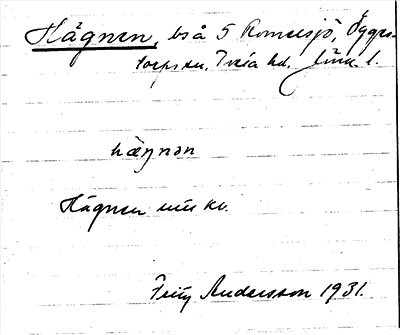 Hägnen, bså 5 Romesjö, Oggestorps sn. Tveta hd. Jönk. l.
hæŋnən
Hägnen
Fritz Andersson 1931.